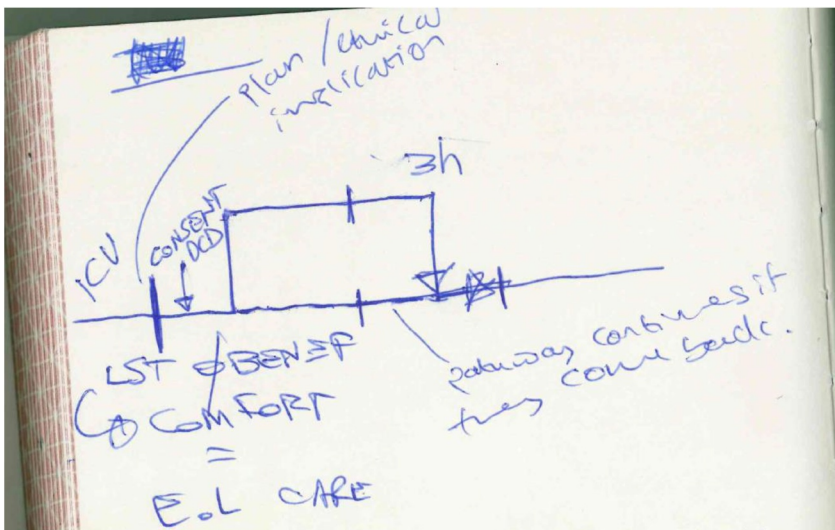 plan / clinical
implication
3h
ICU
CONSENT
DCD
LST Ø BENEF
COMFORT
=
E.O.L CARE
pathway continues if
they come back.